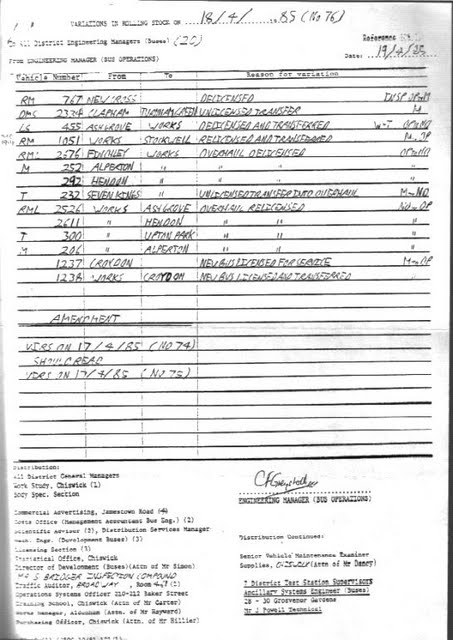 VARIATIONS IN ROLLING STOCK ON 18/4/ 85 (No 76)
All District Engineering Managers (Buses) (20)
Reference
From ENGINEERING MANAGER (BUS OPERATIONS)
Date: 19/4/85
Vehicle Number From To Reason for variation
RM 767 NEW CROSS DELICENSED
DMS 2334 CLAPHAM TURNHAM GREEN UNLICENSED TRANSFER M
LS 455 ASHGROVE WORKS DELICENSED AND TRANSFERRED
RM 1051 WORKS STOCKWELL RELICENSED AND TRANSFERRED
2676 FINCHLEY WORKS OVERHAUL DELICENSED
M 252 ALPERTON " " "
292 HENDON " " "
T 232 SEVEN KINGS " UNLICENSED TRANSFER INTO OVERHAUL
RML 2526 WORKS ASHGROVE OVERHAUL RELICENSED
2611 " HENDON " "
T 300 " UPTON PARK " "
M 206 " ALPERTON " "
1237 CROYDON NEW BUS LICENSED FOR SERVICE
1238 WORKS CROYDON NEW BUS LICENSED AND TRANSFERRED
AMENDMENT
VIRS ON 17/4/85 (No 74)
SHOULD READ
VIRS ON 17/4/85 (No 75)
Distribution:
All District General Managers
Work Study, Chiswick (1)
Body Spec. Section
ENGINEERING MANAGER (BUS OPERATIONS)
Commercial Advertising, Jamestown Road
Costs Office (Management Accountant Bus Eng.) (2)
Scientific Adviser (2), Distribution Services Manager
Mech. Engr. (Development Buses) (2)
Licensing Section (3)
Statistical Office, Chiswick
Director of Development (Buses)(Attn of Mr Simon)
MR S BRIDGER INSPECTION COMPOUND
Traffic Auditor, BROADWAY, Room
Operations Systems Officer 210-212 Baker Street
Training School, Chiswick (Attn of Mr Carter)
Works Manager, Aldenham (Attn. of Mr Hayward)
Purchasing Officer, Chiswick (Attn. of Mr Hillier)
Distribution Continued:
Senior Vehicle Maintenance Examiner
Supplies, CHISWICK (Attn of Mr Dancy)
7 District Test Station Supervisors
Ancillary Systems Engineer (Buses)
28 - 30 Grosvenor Gardens
Mr J Powell Technical